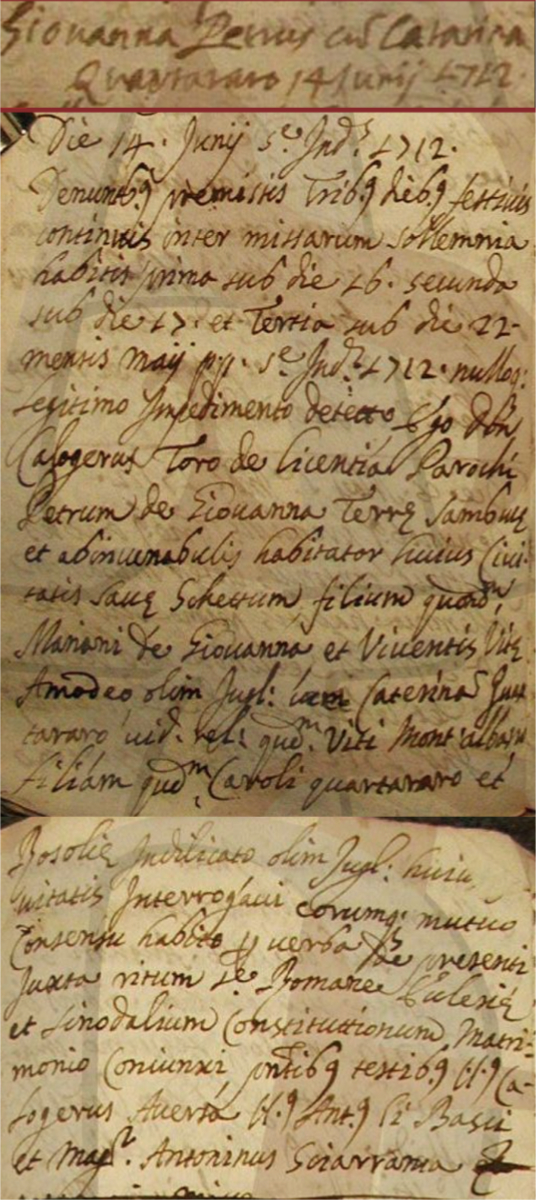 Giovanna Petrus cũ Catarina
Quartararo 14 Junij 1712.
Die 14. Junij 5.e Ind.s 1712.
Denuntb9 premissis Trib9 dieb9 festiuis
continuis inter missarum sollemnia
habitis prima sub die 16. secunda
sub die 17. et Tertia sub die 22.
mensis Maij p.p. 5.e Ind.s 1712. nulloq:
legitimo Impedimento detecto Ego Don
Calogerus Toro de licentia Parochi
Petrum de Giouanna Terrę Sambucę
et abincunabulis habitator huius Ciui-
tatis Saccę Schettum filium quodm
Mariani de Giouanna et Viuentis Vitę
Amodeo olim Jugl: cum Caterina Quar
tararo uid: rel: qudm. Viti Montalbano
filiam qudm Caroli quartararo et
Rosolię Indilicato olim Jugl: huius
uitatis Interrogaui eorumq: mutuo
Consensu habito p uerba de presenti
Juxta ritum S.e Romane Ecclesię
et Sinodalium Constitutionum Matri-
monio Coniunxi, pñtib9 testib9 Cl.9 Ca-
logerus Auerta Cl.9 Ant.9 li Bassi
et Mag.r Antoninus Sciarrania